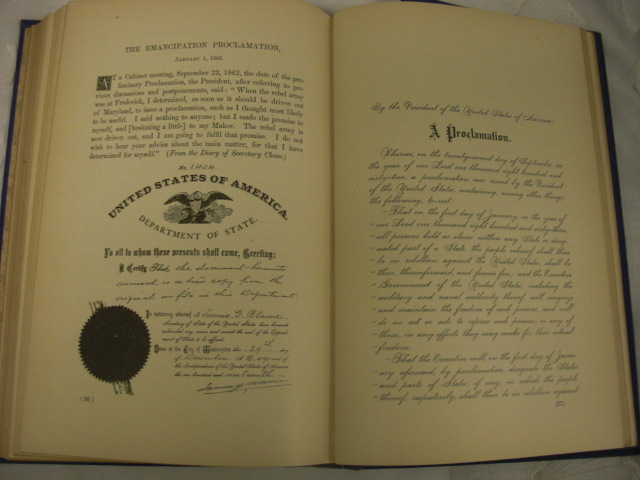 THE EMANCIPATION PROCLAMATION,
JANUARY 1, 1863.
AT a Cabinet meeting, September 22, 1862, the date of the pre-
liminary Proclamation, the President, after referring to pre-
vious discussions and postponements, said: "When the rebel army
was at Frederick, I determined, as soon as it should be driven out
of Maryland, to issue a proclamation, such as I thought most likely
to be useful. I said nothing to anyone; but I made the promise to
myself, and [hesitating a little] to my Maker. The rebel army is
now driven out, and I am going to fulfil that promise. I do not
wish to hear your advice about the main matter, for that I have
determined for myself." (From the Diary of Secretary Chase.)
UNITED STATES OF AMERICA,
DEPARTMENT OF STATE.
To all to whom these presents shall come, Greeting:
I Certify That the document hereunto
annexed is a true copy from the
original on file in this Department
In testimony whereof I James G. Blaine
Secretary of State of the United States have hereunto
subscribed my name and caused the seal of the Depart-
ment of State to be affixed.
Done at the City of Washington this 29th day
of December A.D. 1891 and of
the Independence of the United States of America
the one hundred and
By the President of the United States of America:
A Proclamation.
Whereas, on the twenty-second day of September, in
the year of our Lord one thousand eight hundred and
sixty-two, a proclamation was issued by the President
of the United States, containing, among other things,
the following, to wit:
"That on the first day of January, in the year of
"our Lord one thousand eight hundred and sixty-three,
"all persons held as slaves within any State or desig-
"nated part of a State, the people whereof shall then
"be in rebellion against the United States, shall be
"then, thenceforward, and forever free; and the Executive
"Government of the United States, including the
"military and naval authority thereof, will recognize
"and maintain the freedom of such persons, and will
"do no act or acts to repress such persons, or any of
"them, in any efforts they may make for their actual
"freedom.
"That the Executive will, on the first day of Janu-
"ary aforesaid, by proclamation, designate the States
"and parts of States, if any, in which the people
"thereof, respectively, shall then be in rebellion against